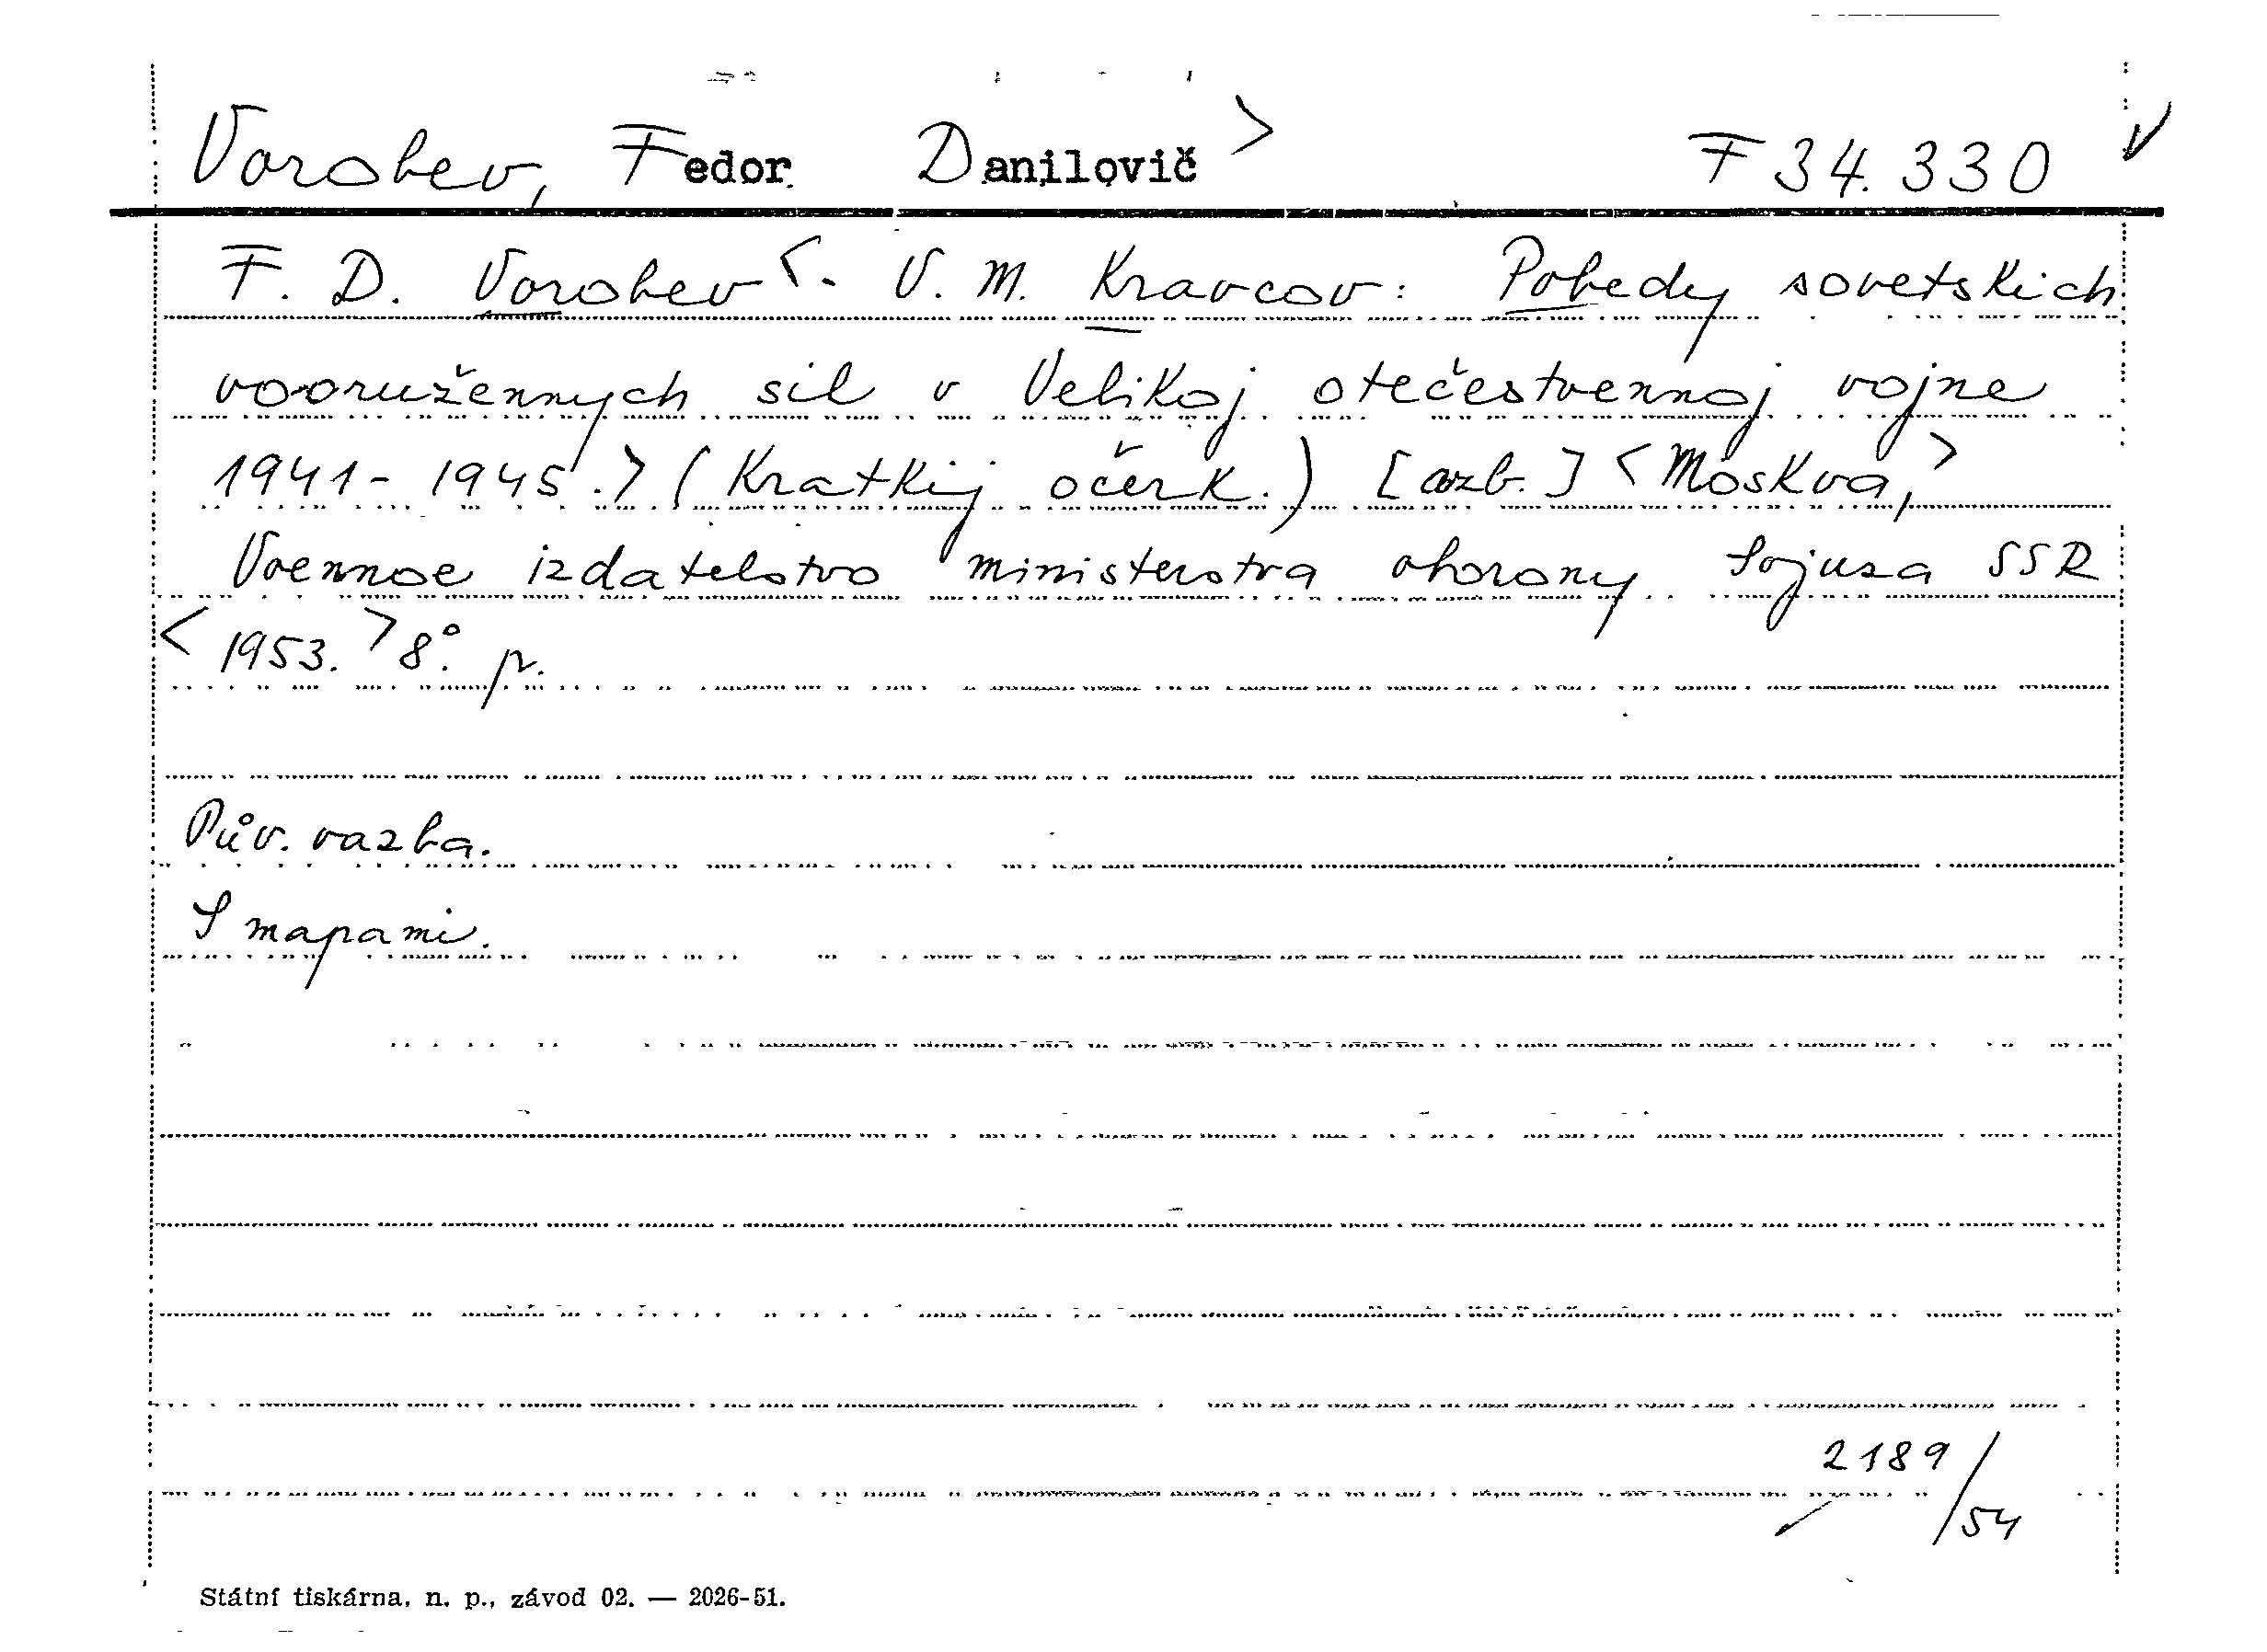 Vorobev, Fedor Danilovič > F 34.330 ✓
F. D. Vorobev <- V. M. Kravcov: Pobedy sovetskich
vooružennych sil v Velikoj otečestvennoj vojne
1941-1945.> (Kratkij očerk.) [azb.] <Moskva,>
Voennoe izdatelstvo ministerstva oborony Sojusa SSR
<1953.> 8°. p.
Pův. vazba.
S mapami.
2189/54
Státní tiskárna, n. p., závod 02. — 2026-51.